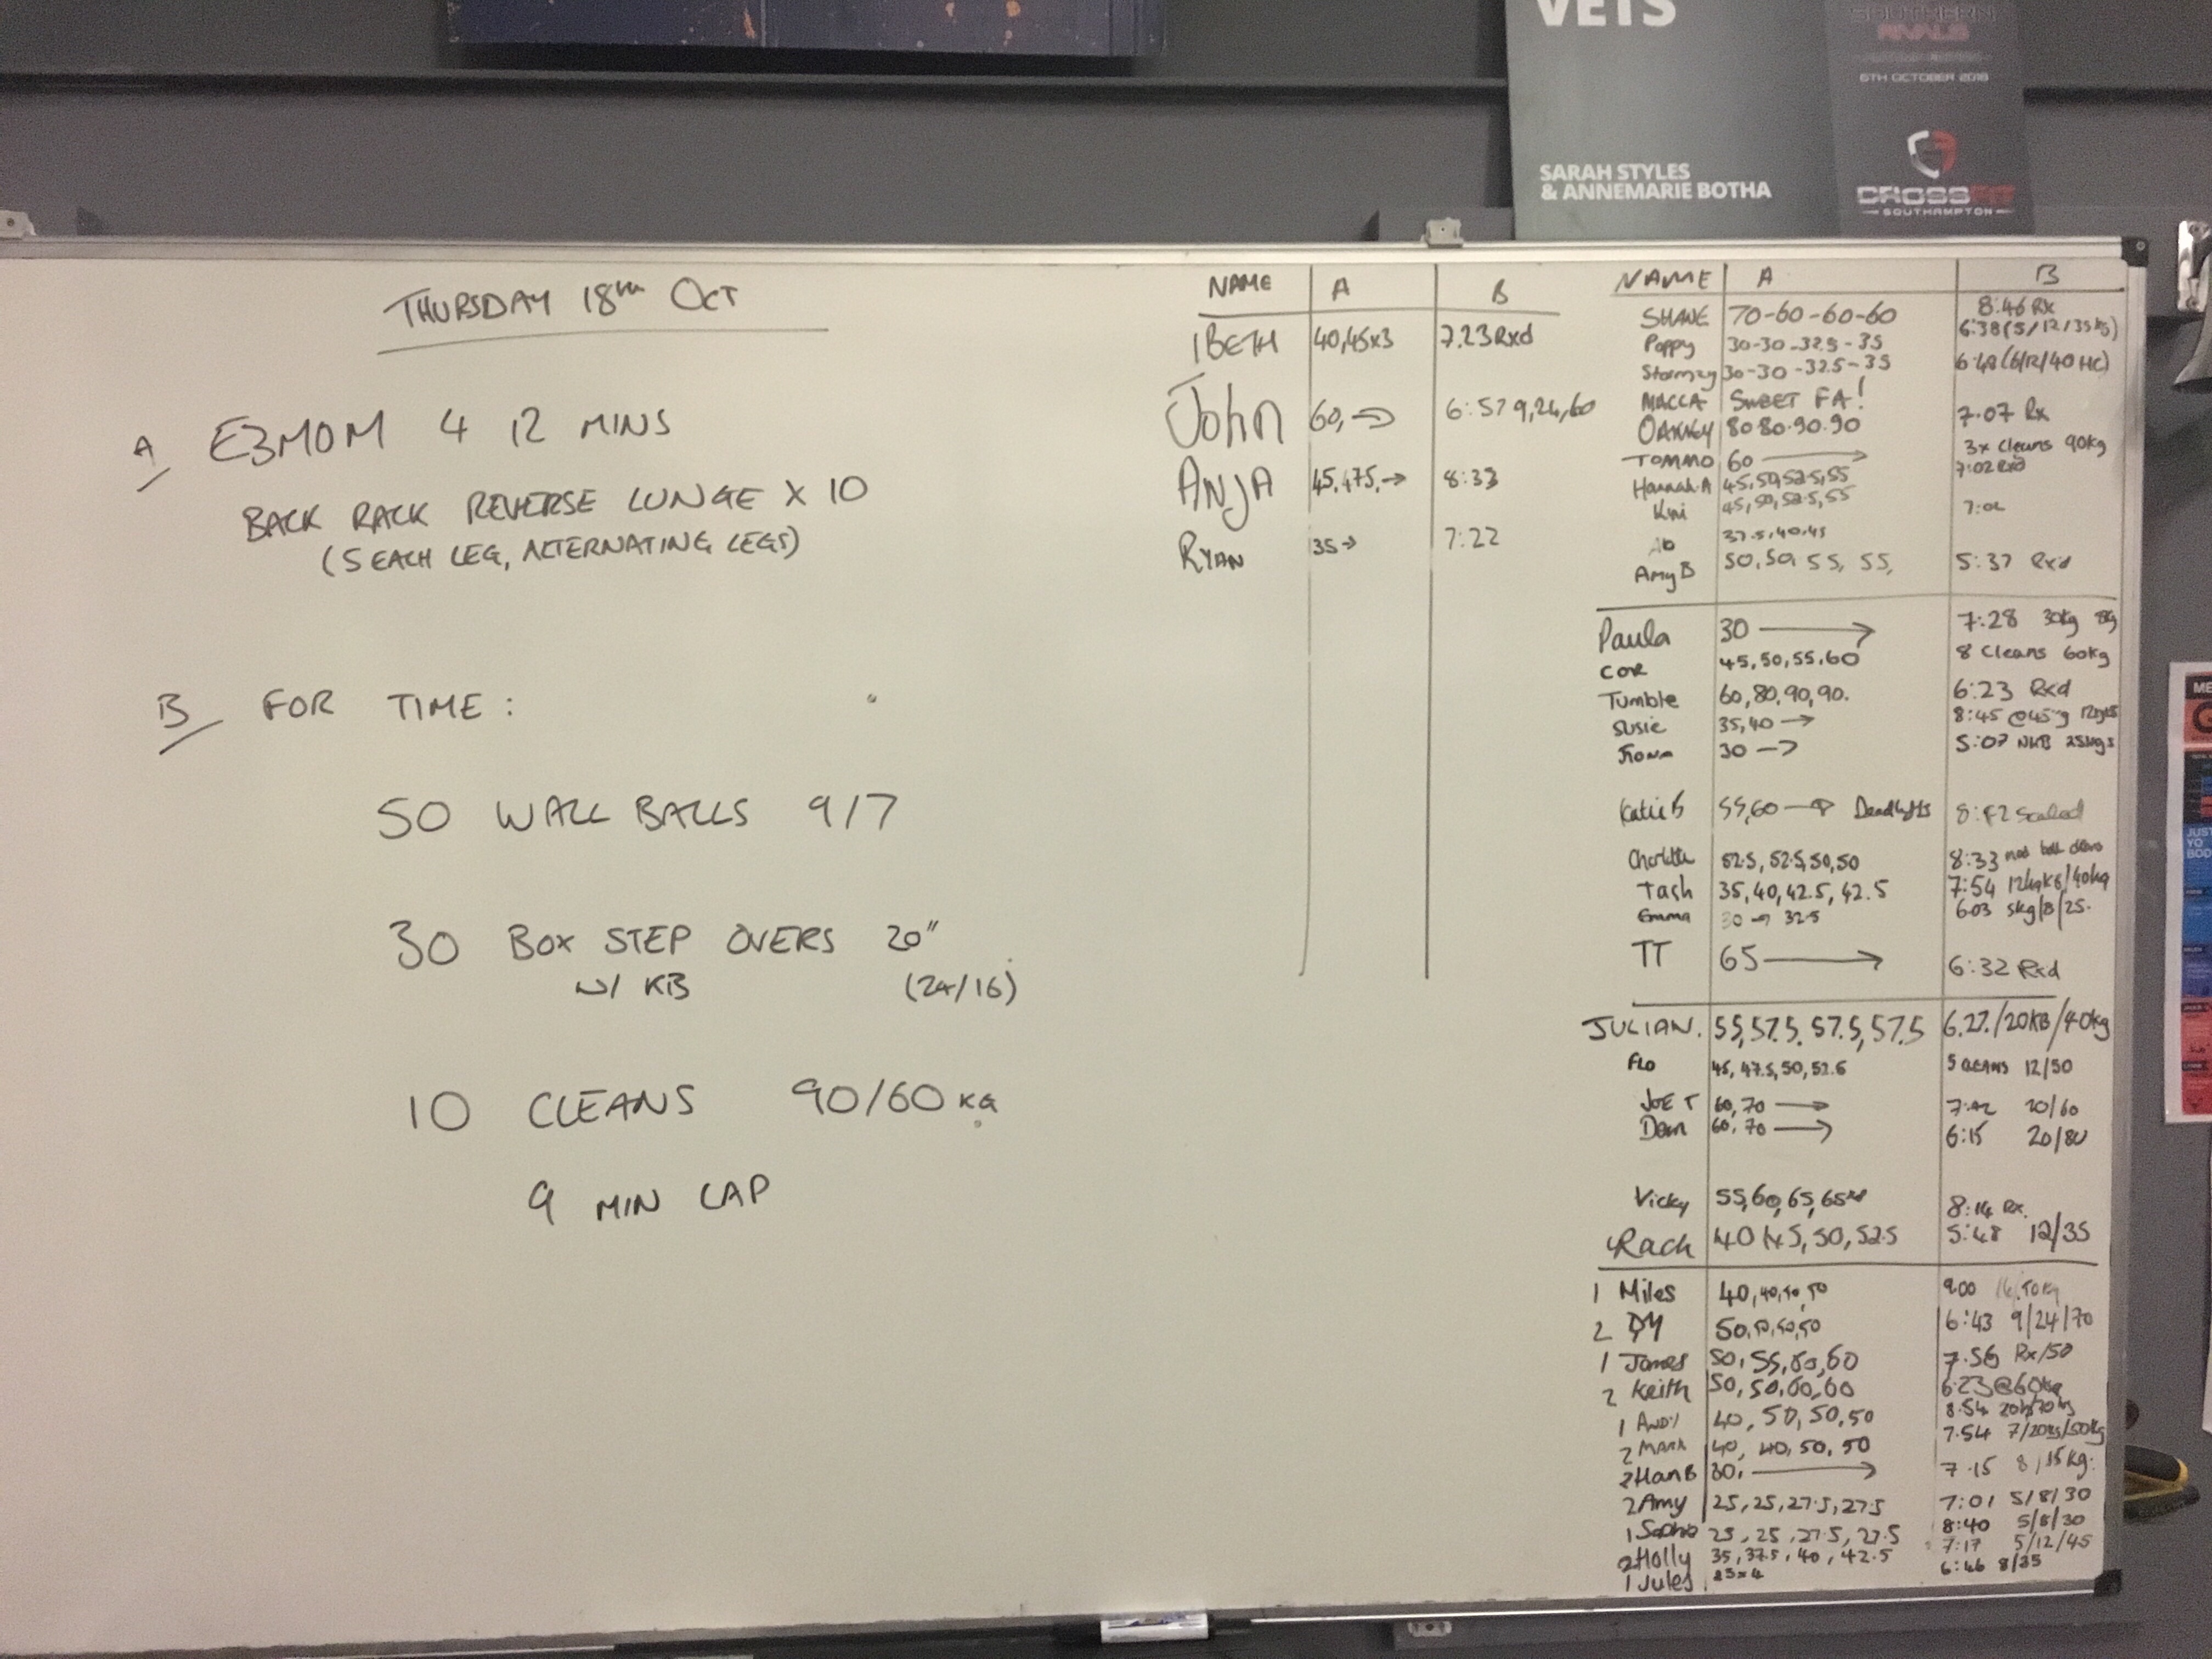 VETS
SARAH STYLES
& ANNEMARIE BOTHA
SOUTHERN
RIVALS
6TH OCTOBER 2018
CROSSFIT
SOUTHAMPTON
THURSDAY 18TH OCT
A E3MOM 4 12 MINS
BACK RACK REVERSE LUNGE X 10
(5 EACH LEG, ALTERNATING LEGS)
B FOR TIME:
50 WALL BALLS 9/7
30 BOX STEP OVERS 20"
W/ KB (24/16)
10 CLEANS 90/60 KG
9 MIN CAP
NAME A B
1 BETH 40,45x3 7.23 Rxd
John 60, → 6:57 9,24,60
ANJA 45,475,→ 8:33
RYAN 35→ 7:22
NAME A B
SHANE 70-60-60-60 8:46 Rx
Poppy 30-30-32.5-35 6:38 (5/12/35kg)
Stormzy 30-30-32.5-35
MACCA SWEET FA!
OAKLEY 80.80.90.90 7.07 Rx
TOMMO 60 → 3x cleans 90kg
Hannah.A 45,50,52.5,55 7:02 Rxd
45,50,52.5,55
37.5,40,45
Amy B 50,50,55,55, 5:37 Rxd
Paula 30 → 7:28 30kg 8kg
COR 45,50,55,60 8 Cleans 60kg
Tumble 60,80,90,90. 6:23 Rxd
Susie 35,40 → 8:45
Fiona 30 → 5:07
Katie B 55,60 → Deadlifts Scaled
Charlotte 52.5, 52.5, 50, 50 8:33
Tash 35,40,42.5,42.5 7:54 12kgKB/40kg
Emma 30 → 32.5 6.03 5kg/8/25.
TT 65 → 6:32 Rxd
JULIAN. 55,57.5,57.5,57.5 6.27./20KB/40kg
FLO 45, 47.5, 50, 52.5 5 CLEANS 12/50
JOE T 60,70 → 20/60
Dean 60,70 → 6:15 20/80
Vicky 55,60,65,65 8:14 Rx.
Rach 40,45,50,52.5 5:48 12/35
1 Miles 40,40,50,50 9.00
2 DM 50,50,50,50 6:43 9/24/70
1 James 50,55,60,60 7.56 Rx/50
2 Keith 50,50,60,60 6:23 @60kg
1 Andy 40, 50, 50, 50 8.54
2 MARK 40, 40, 50, 50 7.54 7/20KG/50kg
2 Han B 30, → 7.15 8/15kg.
2 Amy 25,25,27.5,27.5 7:01 5/8/30
1 Sophie 25, 25, 27.5, 27.5 8:40 5/8/30
2 Holly 35, 37.5, 40, 42.5 7:17 5/12/45
1 Jules 25x4 6:46 8/35